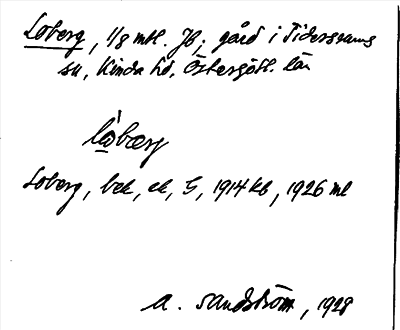 Loberg, 1/8 mtl. Jb; gård i Tidersrums
sn, Kinda hd, Östergötl. län
lòbærg
Loberg, bek, ek, G, 1914 kb, 1926 ml
A. Sandström, 1928